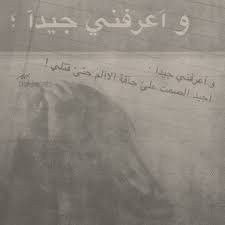 و آعرفني جيداً ؛
و آعرفني جيداً :
آجيد الصمت على حافة الالم حتى قتلي !